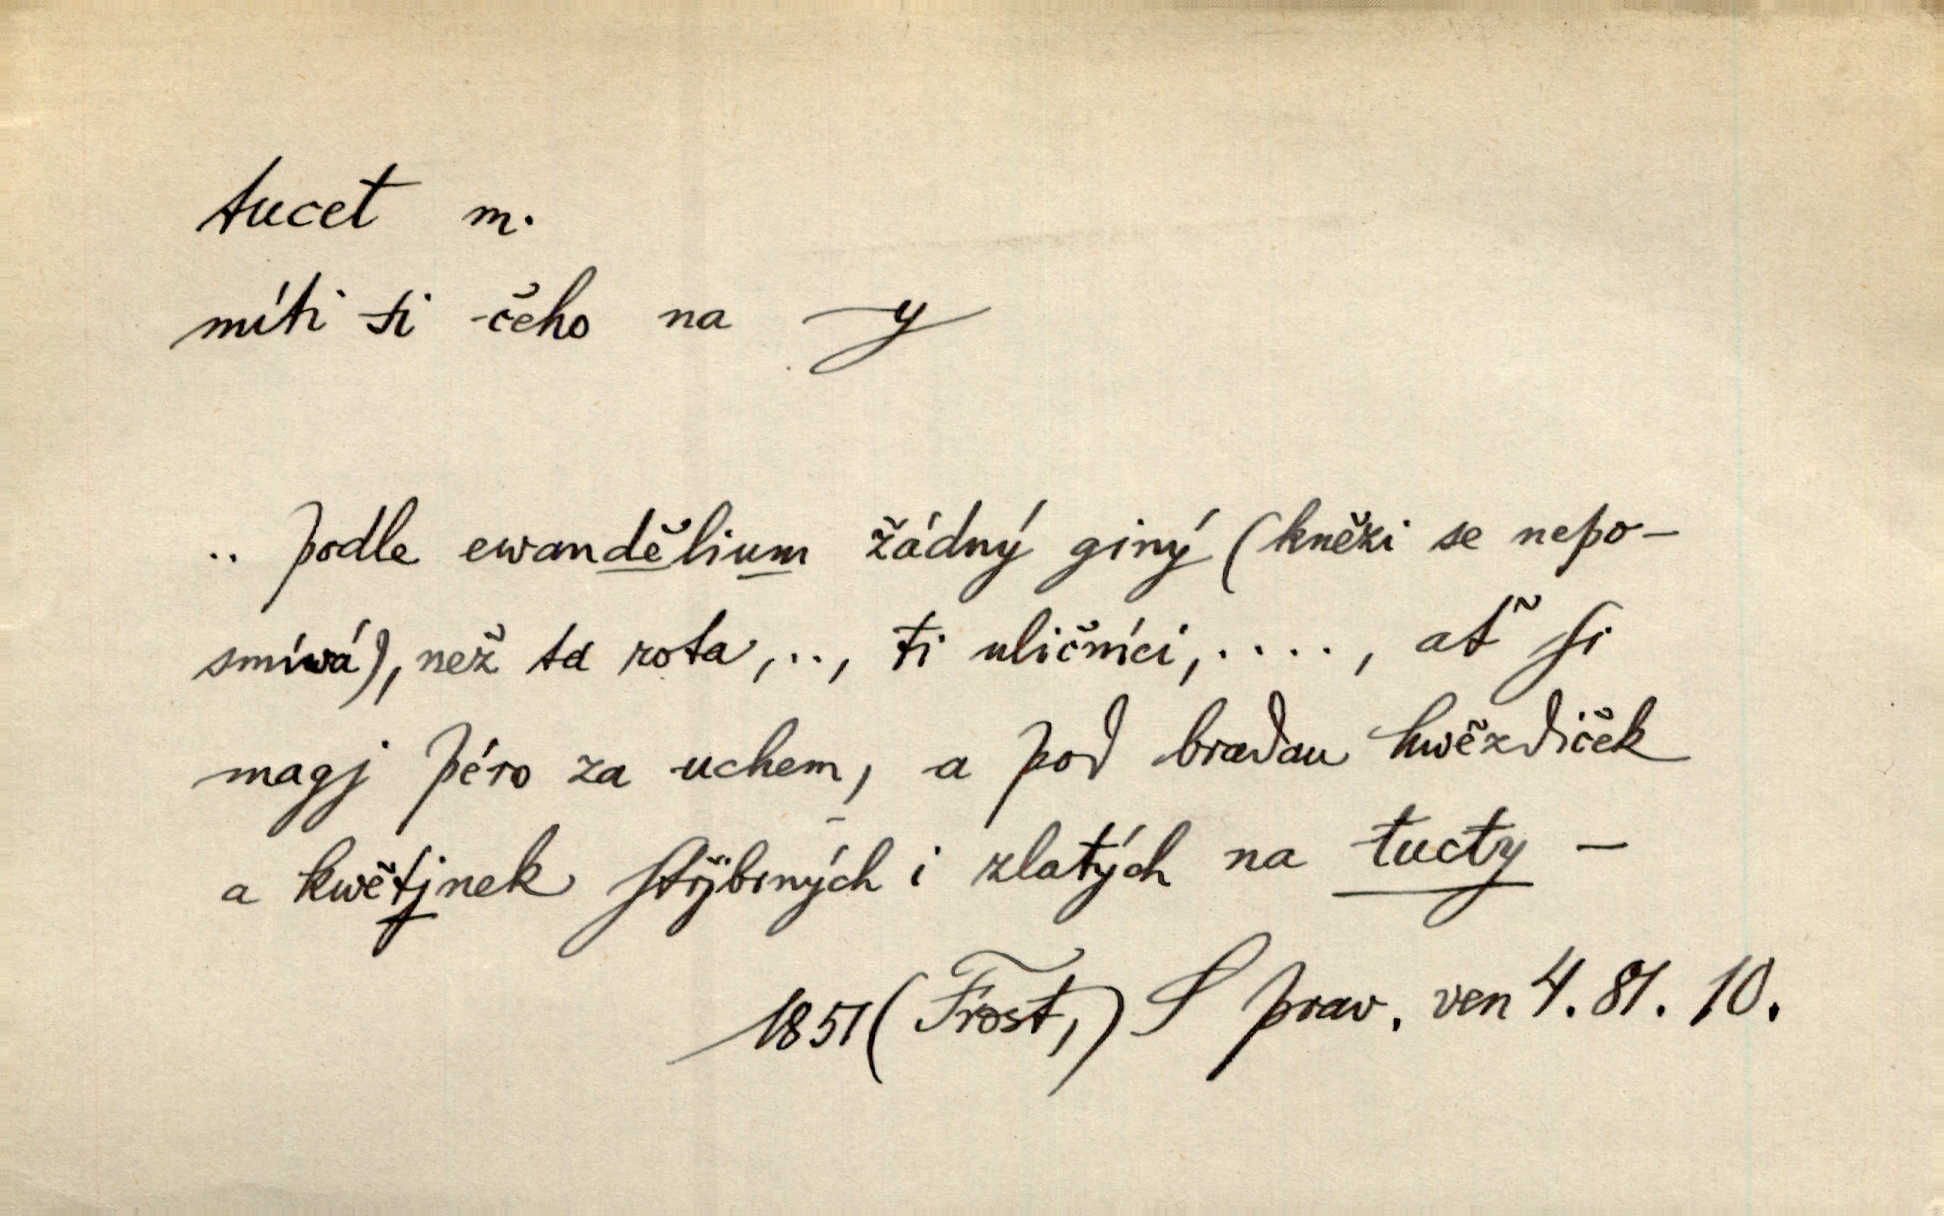 tucet m.
míti si čeho na —y
.. podle ewandělium žádný giný (kněži se nepo-
smíwá), než ta rota, .., ti uličníci, ...., ať si
magj péro za uchem, a pod bradau hwězdiček
a kwětjnek střjbrných i zlatých na tucty —
1851 (Frost,) S prav. ven 4. 81. 10.